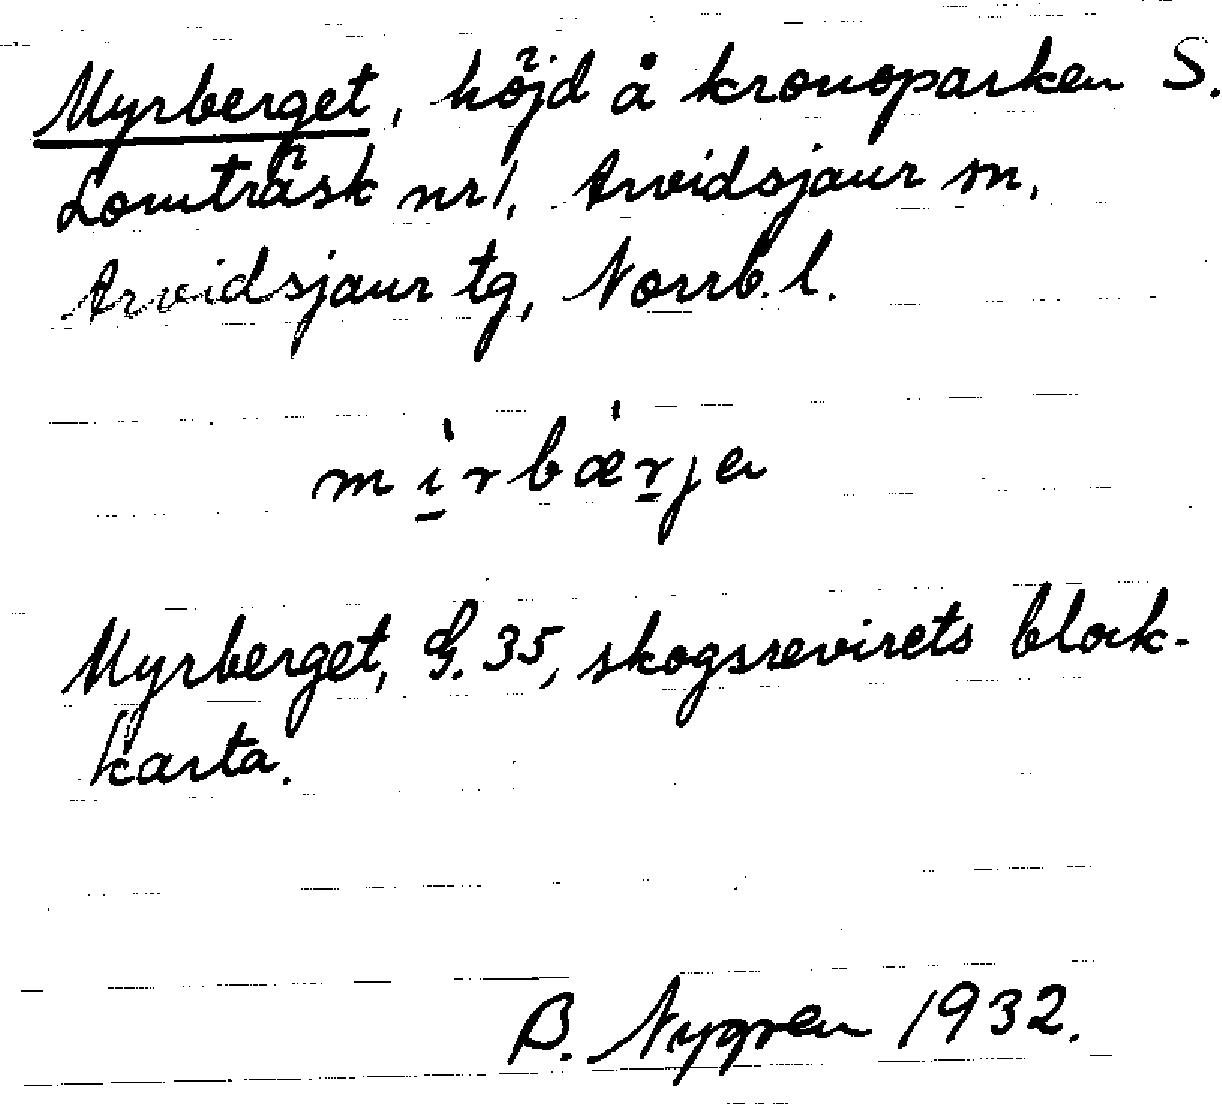 Myrberget, höjd å kronoparken S.
Lomträsk nr 1, Arvidsjaur sn,
Arvidsjaur tg, Norrb. l.
mìrbǽrjɐ
Myrberget, G. 35, skogsrevirets block-
karta.
B. Nygren 1932.